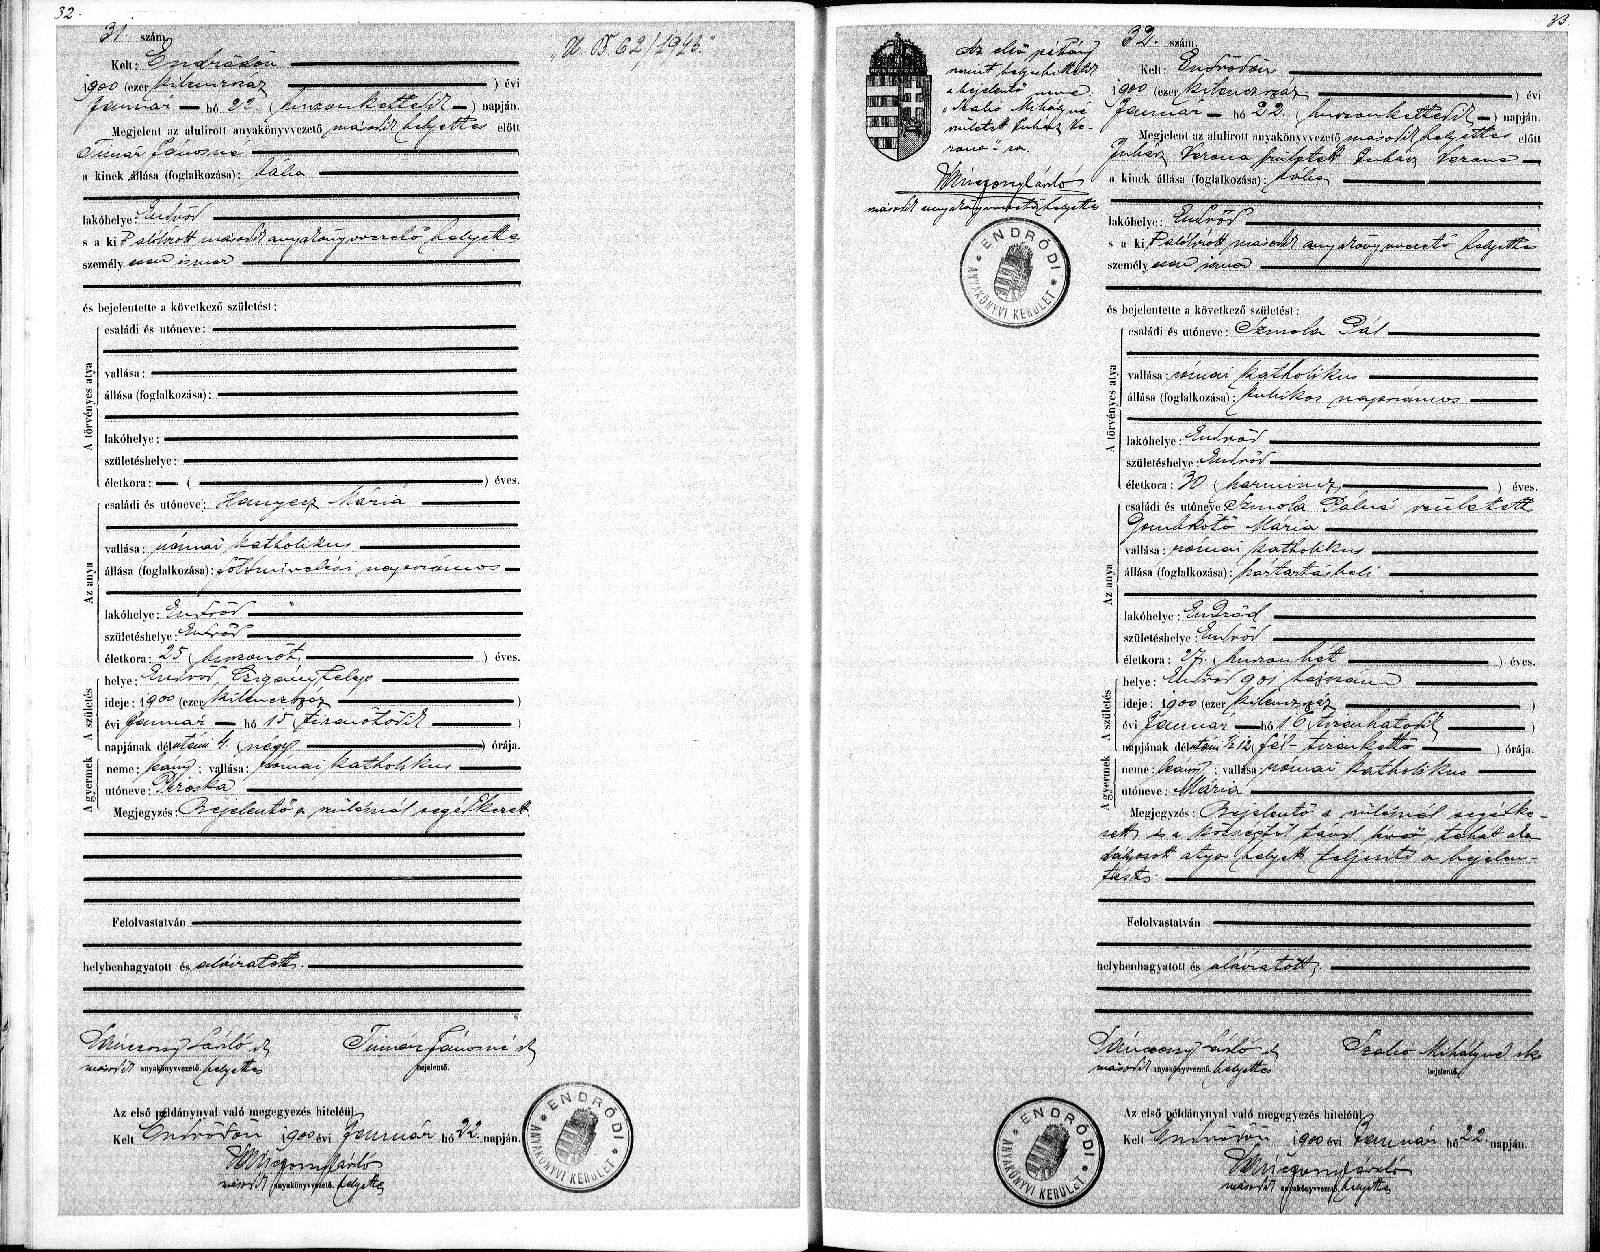 32.
31. szám
Kelt: Endrődön
1900 (ezer kilenczszáz ) évi
Január hó 22 (huszonkettedik ) napján.
Megjelent az alulirott anyakönyvvezető második helyettes előtt
Timár Jánosné
a kinek állása (foglalkozása): bába
lakóhelye: Endrőd
s a ki t alólirott második anyakönyvvezető helyettes
személy esen ismer
és bejelentette a következő születést:
A törvényes atya
családi és utóneve:
vallása:
állása (foglalkozása):
lakóhelye:
születéshelye:
életkora: ( ) éves.
Az anya
családi és utóneve: Hanyecz Mária
vallása: római katholikus
állása (foglalkozása): földmivelési napszámos
lakóhelye: Endrőd
születéshelye: Endrőd
életkora: 25 (huszonöt ) éves.
A születés
helye: Endrőd, Czigánytelep
ideje: 1900 (ezer kilenczszáz )
évi Január hó 15 (tizenötödik )
napjának délutáni 4 (négy ) órája.
A gyermek
neme: leány; vallása: római katholikus
utóneve: Piroska
Megjegyzés: Bejelentő a szülésnél segédkezett
Felolvastatván
helybenhagyatott és aláiratott.
László sk
Timár Jánosné sk
második anyakönyvvezető. helyettes
bejelentő.
Az első példánynyal való megegyezés hiteléül
Kelt Endrődön 1900 évi Január hó 22 napján.
László
második anyakönyvvezető. helyettes
ENDRŐDI
ANYAKÖNYVI KERÜLET
62/1923.
33.
Az első példány
szerint helyesbittetik
a bejelentő neve
"Szabó Mihályné
született Juhász Ve-
rona"-ra.
László
második anyakönyvvezető helyettes
ENDRŐDI
ANYAKÖNYVI KERÜLET
32. szám
Kelt: Endrődön
1900 (ezer kilenczszáz ) évi
Január hó 22. (huszonkettedik ) napján.
Megjelent az alulirott anyakönyvvezető második helyettes előtt
Juhász Verona született Juhász Verona
a kinek állása (foglalkozása): bába
lakóhelye: Endrőd
s a ki t alólirott második anyakönyvvezető helyettes
személy esen ismer
és bejelentette a következő születést:
A törvényes atya
családi és utóneve: Szmola Pál
vallása: római katholikus
állása (foglalkozása): kubikos napszámos
lakóhelye: Endrőd
születéshelye: Endrőd
életkora: 30 (harmincz ) éves.
Az anya
családi és utóneve Szmola Pálné született
Gombkötő Mária
vallása: római katholikus
állása (foglalkozása): háztartásbeli
lakóhelye: Endrőd
születéshelye: Endrőd
életkora: 27. (huszonhét ) éves.
A születés
helye: Endrőd 901 házszám
ideje: 1900 (ezer kilenczszáz )
évi Január hó 16 (tizenhatodik )
napjának délutáni ½12 (fél-tizenkettő ) órája.
A gyermek
neme: leány; vallása: római katholikus
utóneve: Mária
Megjegyzés: Bejelentő a szülésnél segédke-
zett és a községtől távol lévő, tehát aka-
dályozott atya helyett teljesiti a bejelen-
tést.
Felolvastatván
helybenhagyatott és aláiratott
László sk
Szabó Mihályné sk
második anyakönyvvezető. helyettes
bejelentő.
Az első példánynyal való megegyezés hiteléül
Kelt Endrődön 1900 évi Január hó 22 napján.
László
második anyakönyvvezető. helyettes
ENDRŐDI
ANYAKÖNYVI KERÜLET